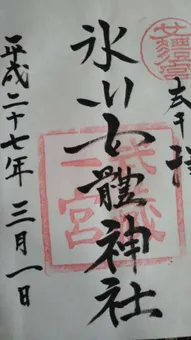 奉拝
武蔵
一宮
氷川女體神社
平成二十七年三月一日